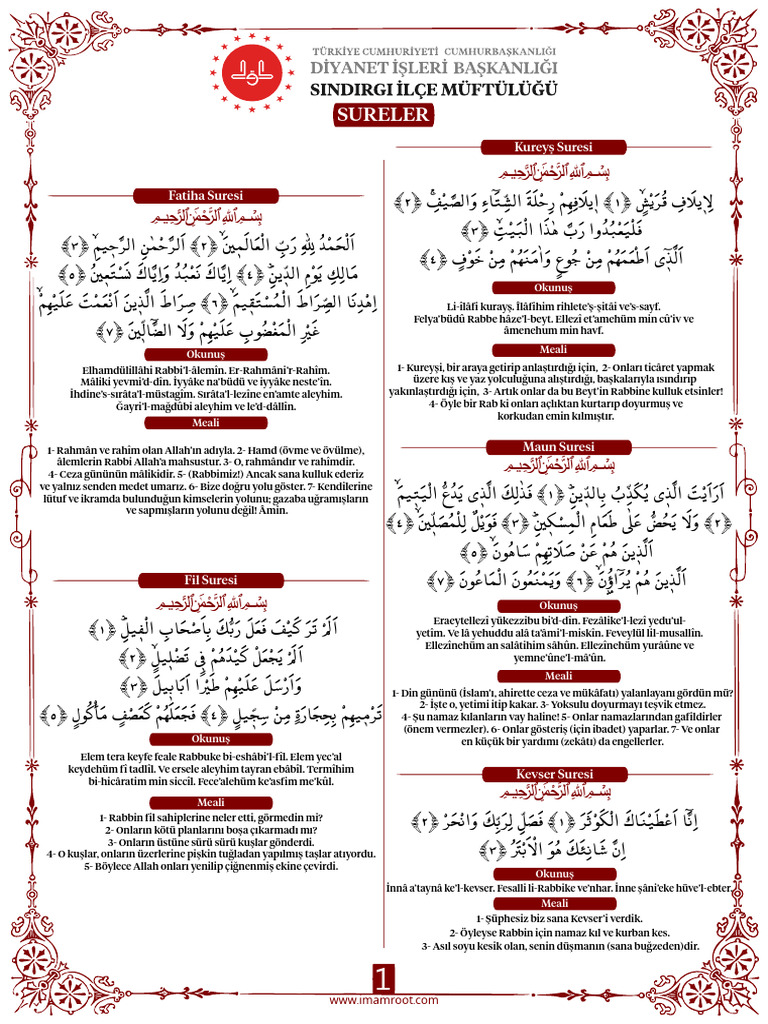 TÜRKİYE CUMHURİYETİ CUMHURBAŞKANLIĞI
DİYANET İŞLERİ BAŞKANLIĞI
SINDIRGI İLÇE MÜFTÜLÜĞÜ
SURELER
Fatiha Suresi
بِسْمِ اللّٰهِ الرَّحْمٰنِ الرَّحِيمِ
اَلْحَمْدُ لِلّٰهِ رَبِّ الْعَالَمٖينَۙ ﴿٢﴾ اَلرَّحْمٰنِ الرَّحٖيمِۙ ﴿٣﴾
مَالِكِ يَوْمِ الدّٖينِؕ ﴿٤﴾ اِيَّاكَ نَعْبُدُ وَاِيَّاكَ نَسْتَعٖينُؕ ﴿٥﴾
اِهْدِنَا الصِّرَاطَ الْمُسْتَقٖيمَۙ ﴿٦﴾ صِرَاطَ الَّذٖينَ اَنْعَمْتَ عَلَيْهِمْۙ
غَيْرِ الْمَغْضُوبِ عَلَيْهِمْ وَلَا الضَّٓالّٖينَ ﴿٧﴾
Okunuş
Elhamdülillâhi Rabbi'l-âlemîn. Er-Rahmâni'r-Rahîm.
Mâliki yevmi'd-dîn. İyyâke na'büdü ve iyyâke neste'în.
İhdine's-sırâta'l-müstagîm. Sırâta'l-lezîne en'amte aleyhim.
Ğayri'l-mağdûbi aleyhim ve le'd-dâllîn.
Meali
1- Rahmân ve rahîm olan Allah'ın adıyla. 2- Hamd (övme ve övülme),
âlemlerin Rabbi Allah'a mahsustur. 3- O, rahmândır ve rahîmdir.
4- Ceza gününün mâlikidir. 5- (Rabbimiz!) Ancak sana kulluk ederiz
ve yalnız senden medet umarız. 6- Bize doğru yolu göster. 7- Kendilerine
lütuf ve ikramda bulunduğun kimselerin yolunu; gazaba uğramışların
ve sapmışların yolunu değil! Âmin.
Fil Suresi
بِسْمِ اللّٰهِ الرَّحْمٰنِ الرَّحِيمِ
اَلَمْ تَرَ كَيْفَ فَعَلَ رَبُّكَ بِاَصْحَابِ الْفٖيلِؕ ﴿١﴾
اَلَمْ يَجْعَلْ كَيْدَهُمْ فٖى تَضْلٖيلٍۙ ﴿٢﴾
وَاَرْسَلَ عَلَيْهِمْ طَيْرًا اَبَابٖيلَۙ ﴿٣﴾
تَرْمٖيهِمْ بِحِجَارَةٍ مِنْ سِجّٖيلٍۙ ﴿٤﴾ فَجَعَلَهُمْ كَعَصْفٍ مَأْكُولٍ ﴿٥﴾
Okunuş
Elem tera keyfe feale Rabbuke bi-eshâbi'l-fîl. Elem yec'al
keydehüm fî tadlîl. Ve ersele aleyhim tayran ebâbîl. Termîhim
bi-hicâratim min siccîl. Fece'alehüm ke'asfim me'kûl.
Meali
1- Rabbin fil sahiplerine neler etti, görmedin mi?
2- Onların kötü planlarını boşa çıkarmadı mı?
3- Onların üstüne sürü sürü kuşlar gönderdi.
4- O kuşlar, onların üzerlerine pişkin tuğladan yapılmış taşlar atıyordu.
5- Böylece Allah onları yenilip çiğnenmiş ekine çevirdi.
Kureyş Suresi
بِسْمِ اللّٰهِ الرَّحْمٰنِ الرَّحِيمِ
لِاٖيلَافِ قُرَيْشٍۙ ﴿١﴾ اٖيلَافِهِمْ رِحْلَةَ الشِّتَٓاءِ وَالصَّيْفِۚ ﴿٢﴾
فَلْيَعْبُدُوا رَبَّ هٰذَا الْبَيْتِۙ ﴿٣﴾
اَلَّذٖٓى اَطْعَمَهُمْ مِنْ جُوعٍ وَاٰمَنَهُمْ مِنْ خَوْفٍ ﴿٤﴾
Okunuş
Li-îlâfi kurayş. Îlâfihim rihlete'ş-şitâi ve's-sayf.
Felya'büdû Rabbe hâze'l-beyt. Ellezî et'amehüm min cû'iv ve
âmenehum min havf.
Meali
1- Kureyşi, bir araya getirip anlaştırdığı için, 2- Onları ticâret yapmak
üzere kış ve yaz yolculuğuna alıştırdığı, başkalarıyla ısındırıp
yakınlaştırdığı için, 3- Artık onlar da bu Beyt'in Rabbine kulluk etsinler!
4- Öyle bir Rab ki onları açlıktan kurtarıp doyurmuş ve
korkudan emin kılmıştır.
Maun Suresi
بِسْمِ اللّٰهِ الرَّحْمٰنِ الرَّحِيمِ
اَرَاَيْتَ الَّذٖى يُكَذِّبُ بِالدّٖينِؕ ﴿١﴾ فَذٰلِكَ الَّذٖى يَدُعُّ الْيَتٖيمَۙ
﴿٢﴾ وَلَا يَحُضُّ عَلٰى طَعَامِ الْمِسْكٖينِؕ ﴿٣﴾ فَوَيْلٌ لِلْمُصَلّٖينَۙ ﴿٤﴾
اَلَّذٖينَ هُمْ عَنْ صَلَاتِهِمْ سَاهُونَۙ ﴿٥﴾
اَلَّذٖينَ هُمْ يُرَٓاؤُنَۙ ﴿٦﴾ وَيَمْنَعُونَ الْمَاعُونَ ﴿٧﴾
Okunuş
Eraeytellezî yükezzibu bi'd-dîn. Fezâlike'l-lezî yedu'ul-
yetîm. Ve lâ yehuddu alâ ta'âmi'l-miskîn. Feveylül lil-musallîn.
Ellezînehüm an salâtihim sâhûn. Ellezînehüm yurâûne ve
yemne'ûne'l-mâ'ûn.
Meali
1- Din gününü (İslam'ı, ahirette ceza ve mükâfatı) yalanlayanı gördün mü?
2- İşte o, yetimi itip kakar. 3- Yoksulu doyurmayı teşvik etmez.
4- Şu namaz kılanların vay haline! 5- Onlar namazlarından gafildirler
(önem vermezler). 6- Onlar gösteriş (için ibadet) yaparlar. 7- Ve onlar
en küçük bir yardımı (zekâtı) da engellerler.
Kevser Suresi
بِسْمِ اللّٰهِ الرَّحْمٰنِ الرَّحِيمِ
اِنَّٓا اَعْطَيْنَاكَ الْكَوْثَرَؕ ﴿١﴾ فَصَلِّ لِرَبِّكَ وَانْحَرْؕ ﴿٢﴾
اِنَّ شَانِئَكَ هُوَ الْاَبْتَرُ ﴿٣﴾
Okunuş
İnnâ a'taynâ ke'l-kevser. Fesalli li-Rabbike ve'nhar. İnne şâni'eke hüve'l-ebter.
Meali
1- Şüphesiz biz sana Kevser'i verdik.
2- Öyleyse Rabbin için namaz kıl ve kurban kes.
3- Asıl soyu kesik olan, senin düşmanın (sana buğzeden)dir.
1
www.imamroot.com